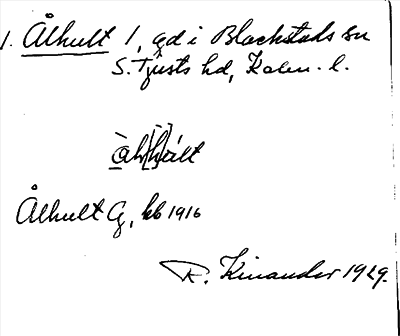 1. Ålhult 1, gd i Blackstads sn
S. Tjusts hd, Kalm. l.
Ålhult G, kb 1916
R. Kinander 1929.